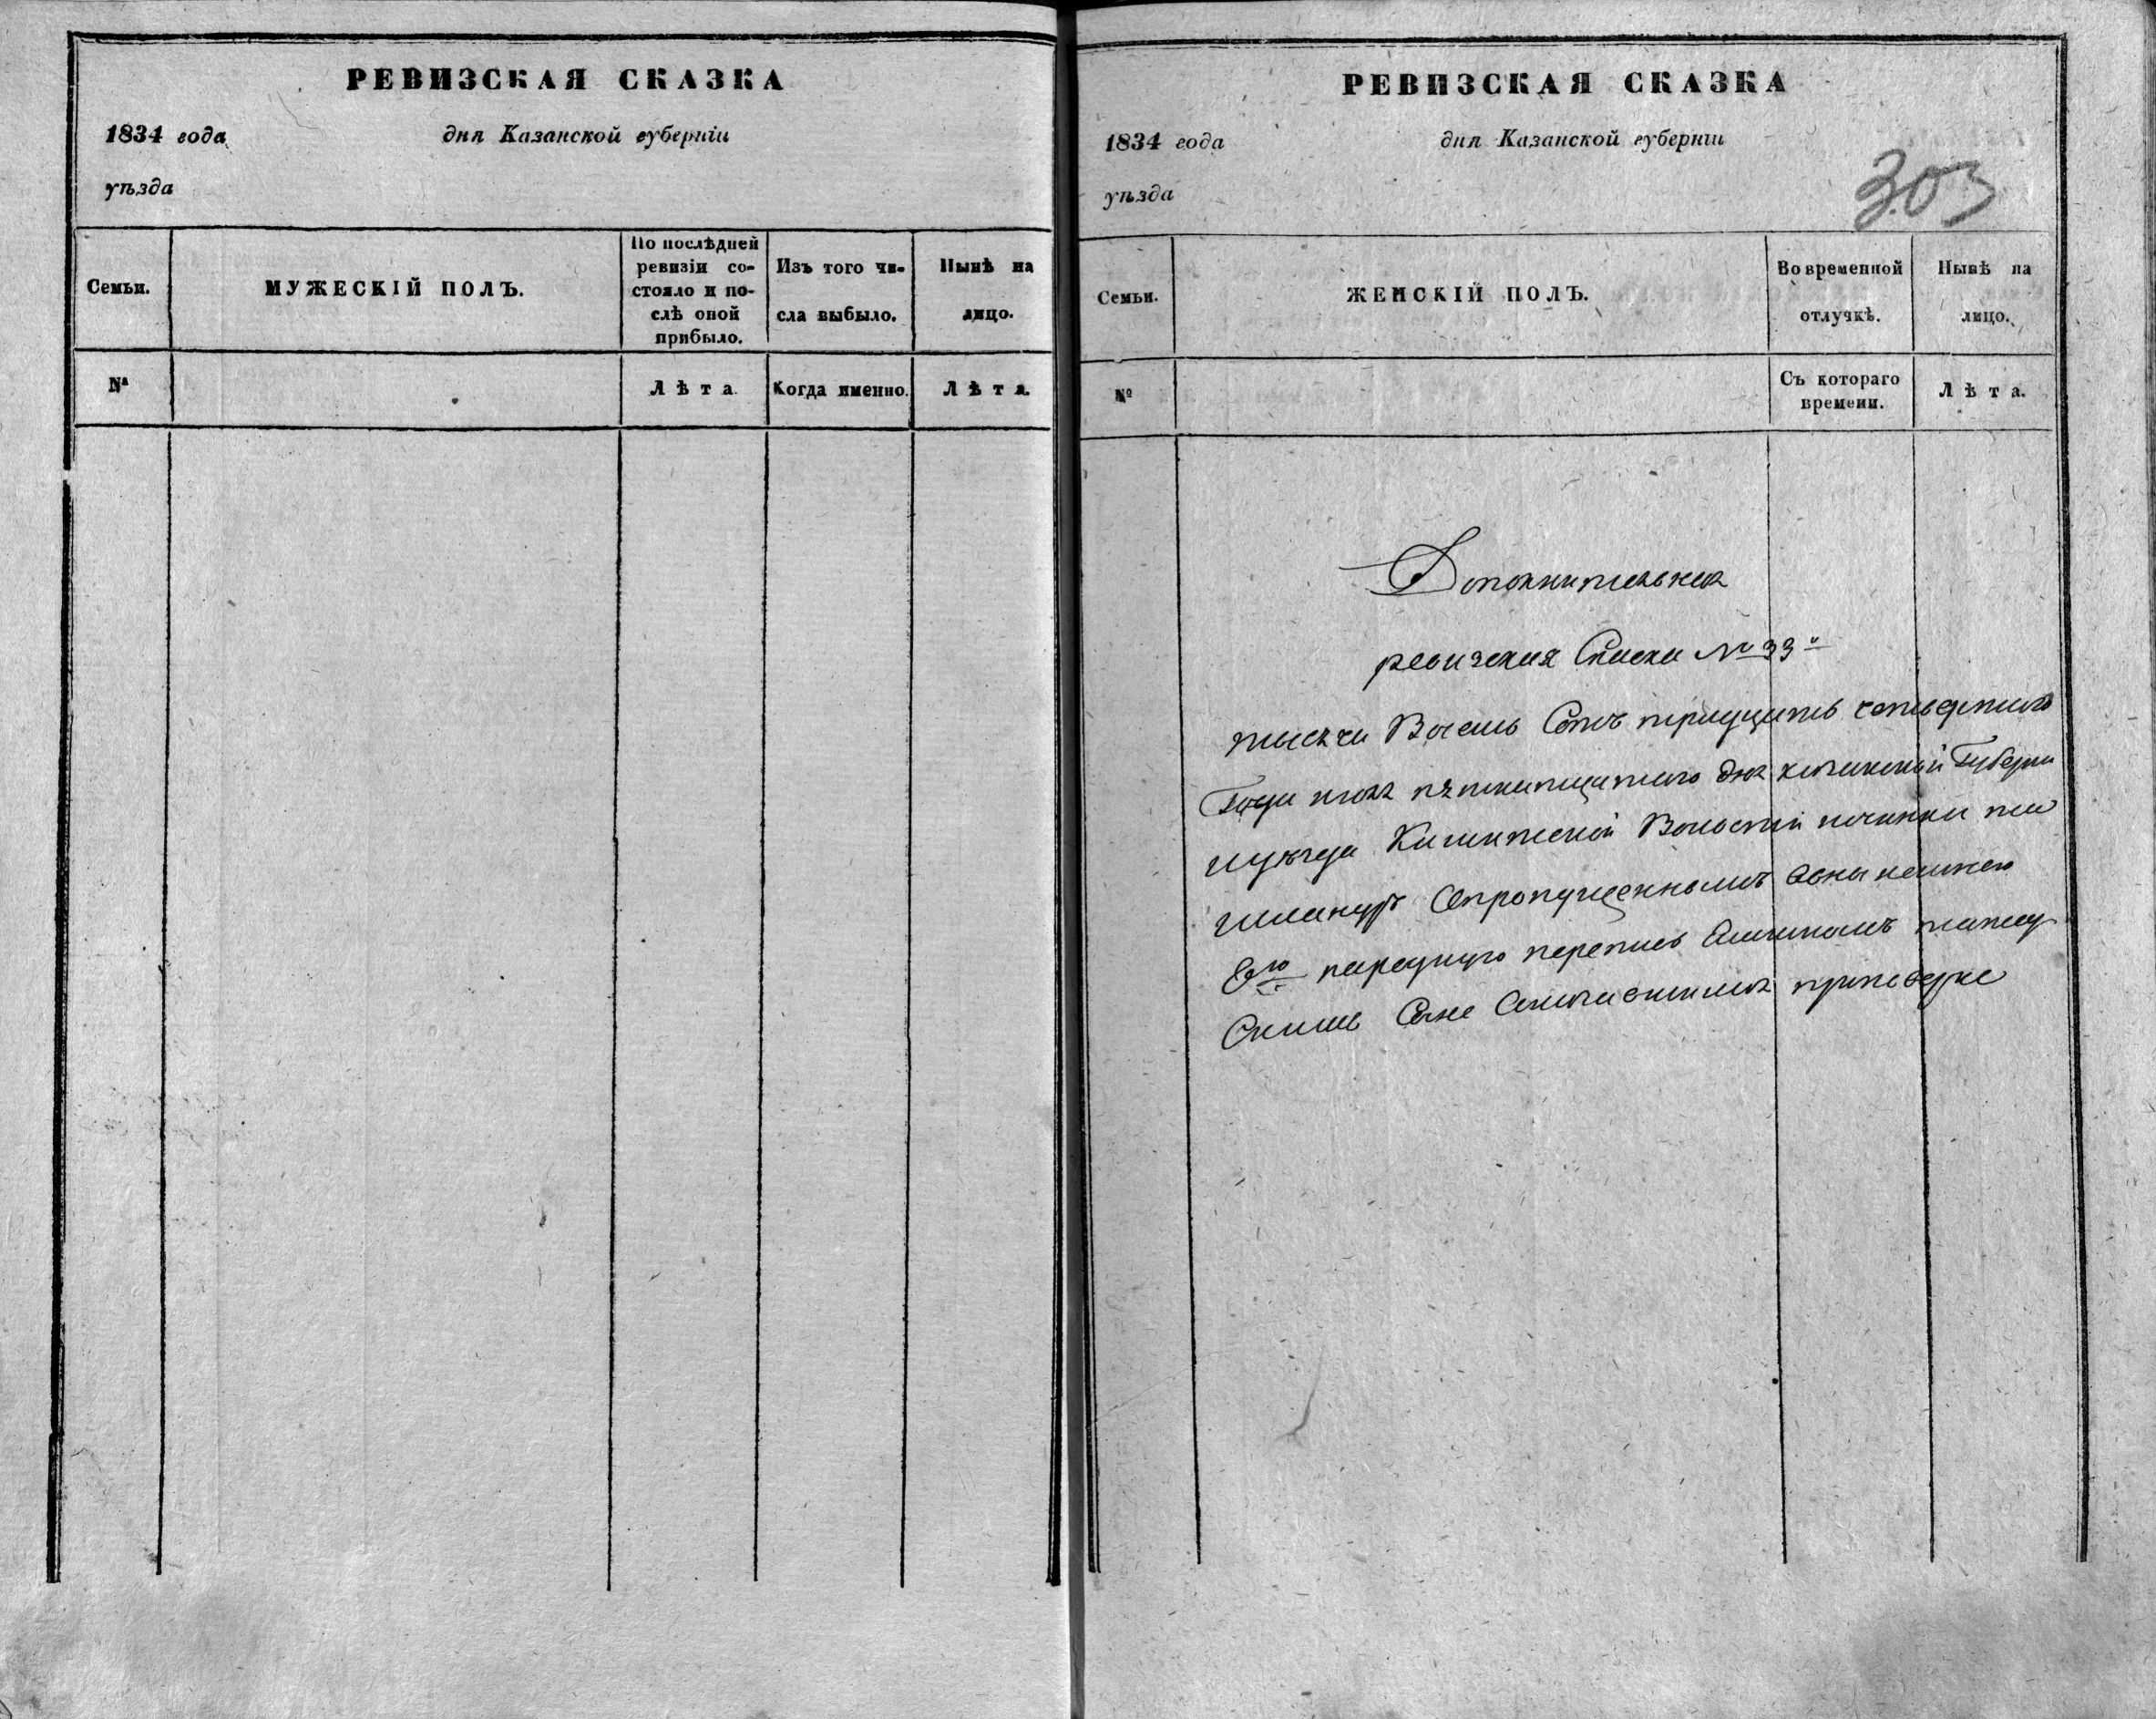 РЕВИЗСКАЯ СКАЗКА
1834 года дня Казанской губерніи
уѣзда
Семьи.
МУЖЕСКІЙ ПОЛЪ.
По послѣдней
ревизіи со-
стояло и по-
слѣ оной
прибыло.
Изъ того чи-
сла выбыло.
Нынѣ на
лицо.
№
Лѣта.
Когда именно.
Лѣта.
РЕВИЗСКАЯ СКАЗКА
1834 года дня Казанской губерніи
уѣзда
303
Семьи.
ЖЕНСКІЙ ПОЛЪ.
Во временной
отлучкѣ.
Нынѣ на
лицо.
№
Съ котораго
времени.
Лѣта.
Дополнительная
ревизская Скаска № 33й
тысяча Восемь Сотъ тридцать четвертого
Года маія пятнатцатого дня казанской Губерни
Волости починка
Опропущенномъ
8ю народную перепись